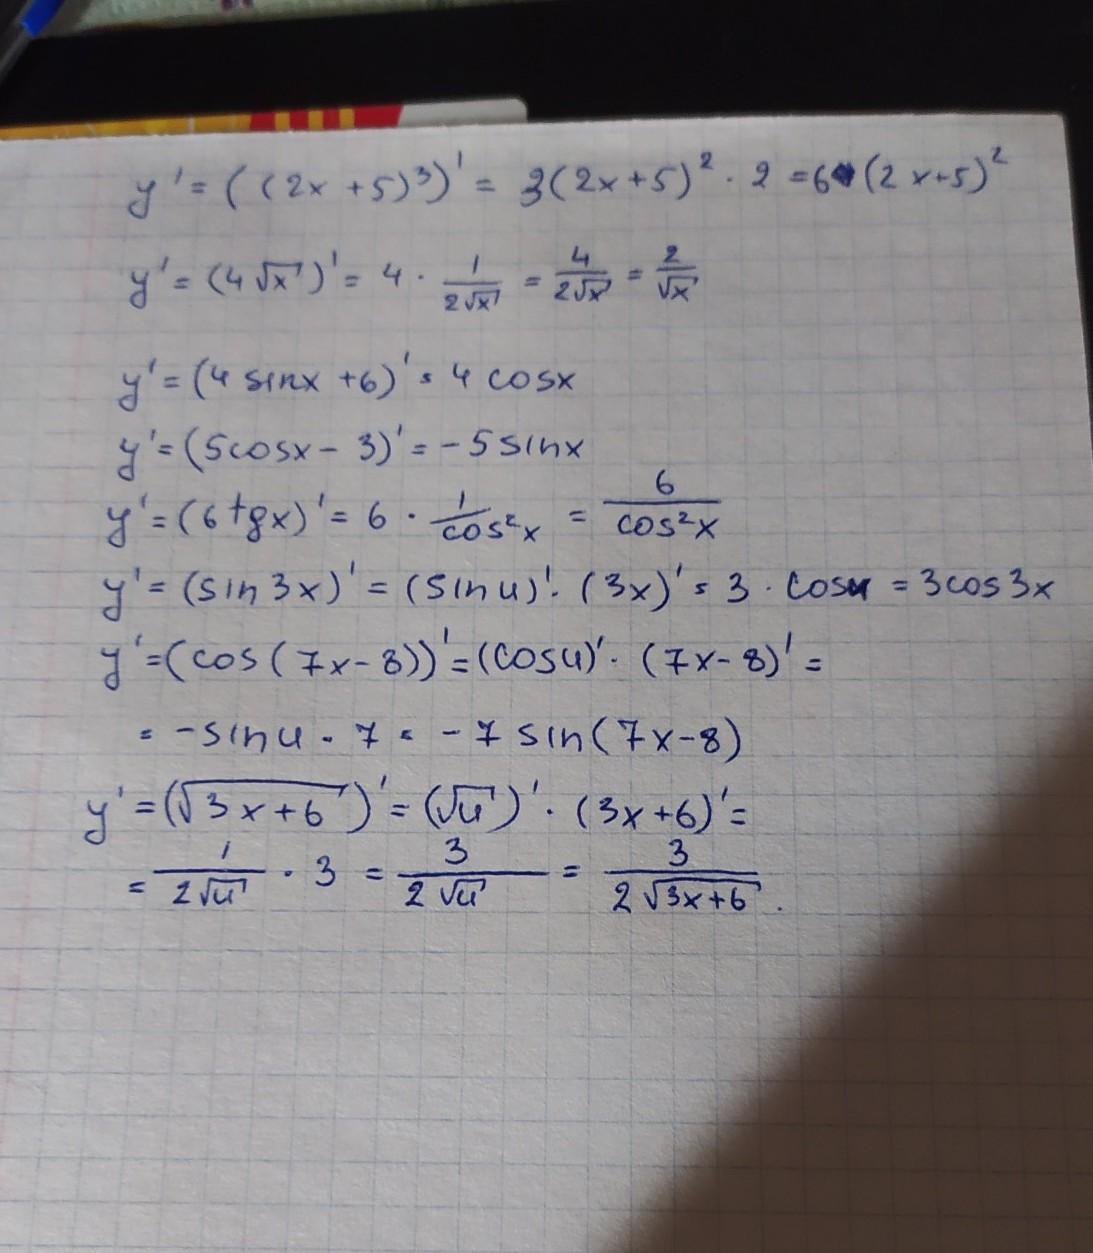 y' = ((2x+5)³)' = 3(2x+5)² · 2 = 6 (2x+5)²
y' = (4√x)' = 4 · 1/(2√x) = 4/(2√x) = 2/√x
y' = (4 sinx + 6)' = 4 cosx
y' = (5cosx - 3)' = -5 sinx
y' = (6 tgx)' = 6 · 1/cos²x = 6/cos²x
y' = (sin 3x)' = (sin u)' · (3x)' = 3 · cosu = 3cos3x
y' = (cos(7x-8))' = (cosu)' · (7x-8)' =
= -sinu · 7 = -7 sin(7x-8)
y' = (√(3x+6))' = (√u)' · (3x+6)' =
= 1/(2√u) · 3 = 3/(2√u) = 3/(2√(3x+6)).